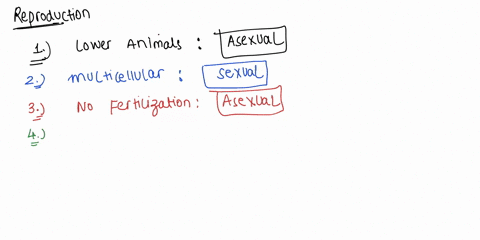 Reproduction
1.) Lower Animals : Asexual
2.) multicellular : sexual
3.) No Fertilization : Asexual
4.)